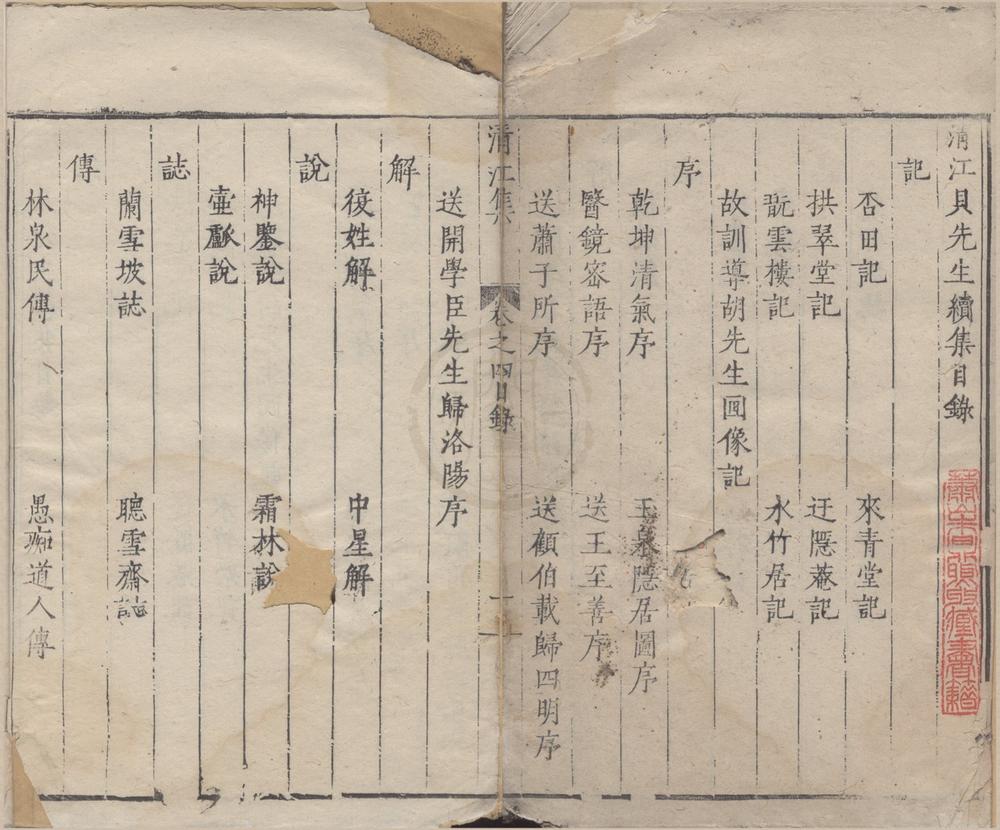 清江貝先生續集目錄
記
杏田記 來青堂記
拱翠堂記 迂隱菴記
翫雲樓記 水竹居記
故訓導胡先生圖像記
序
乾坤清氣序 玉泉隱居圖序
醫鏡密語序 送王至善序
送蕭子所序 送顧伯載歸四明序
清江集 卷之四目錄 一
送開學臣先生歸洛陽序
解
復姓解 中星解
說
神鑒說 霜林說
壺㽃說
誌
蘭雪坡誌 聽雪齋誌
傳
林泉民傳 愚痴道人傳